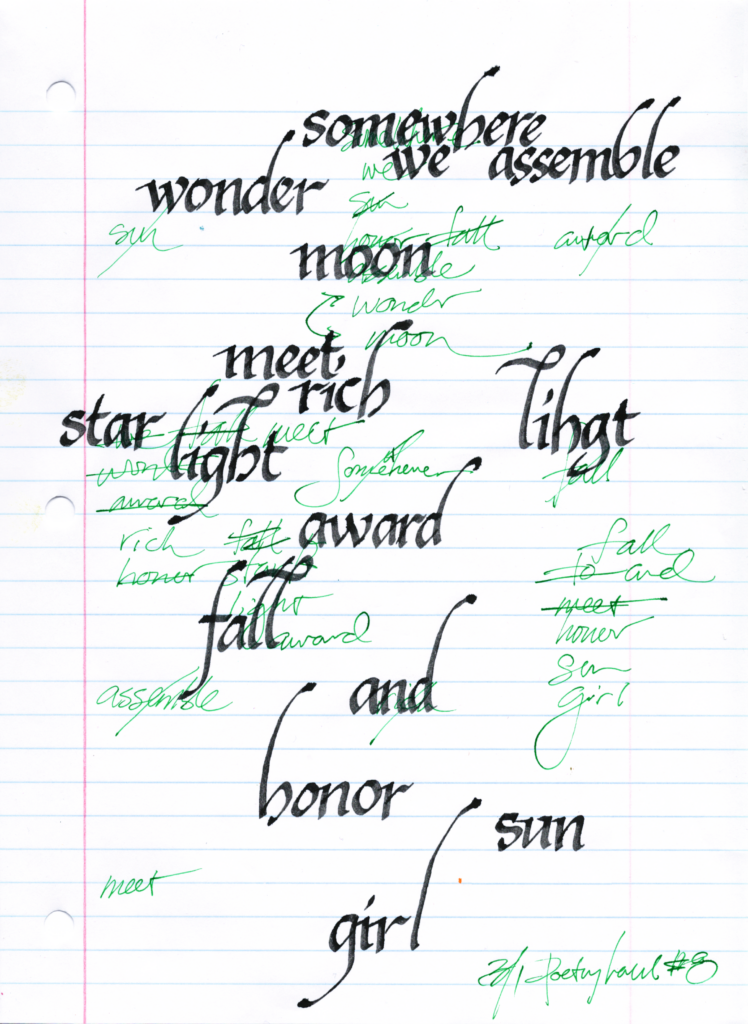 somewhere
we assemble
wonder
we
sun
sun
honor fall
award
moon
assemble
wonder
moon
meet,
rich
star
light
lihgt
meet
fall
award
award
rich fall
fall
honor star
to and
fall
light
meet
award
honor
and
sun
assemble
girl
honor
sun
meet
girl
3/1 #8